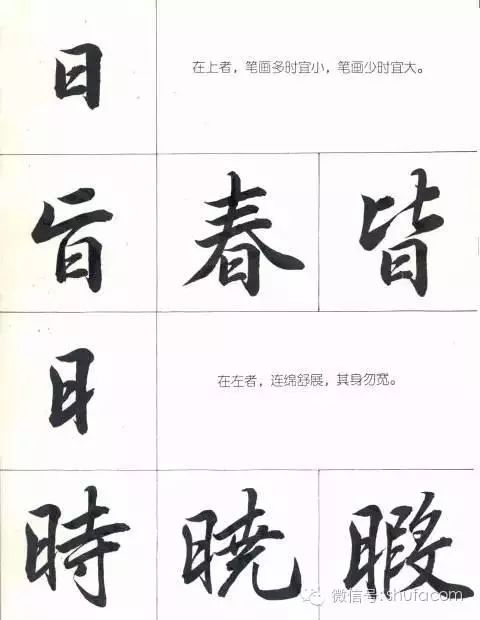 日
在上者，笔画多时宜小，笔画少时宜大。
旨 春 皆
日
在左者，连绵舒展，其身勿宽。
時 曉 暇
微信号: shufacom